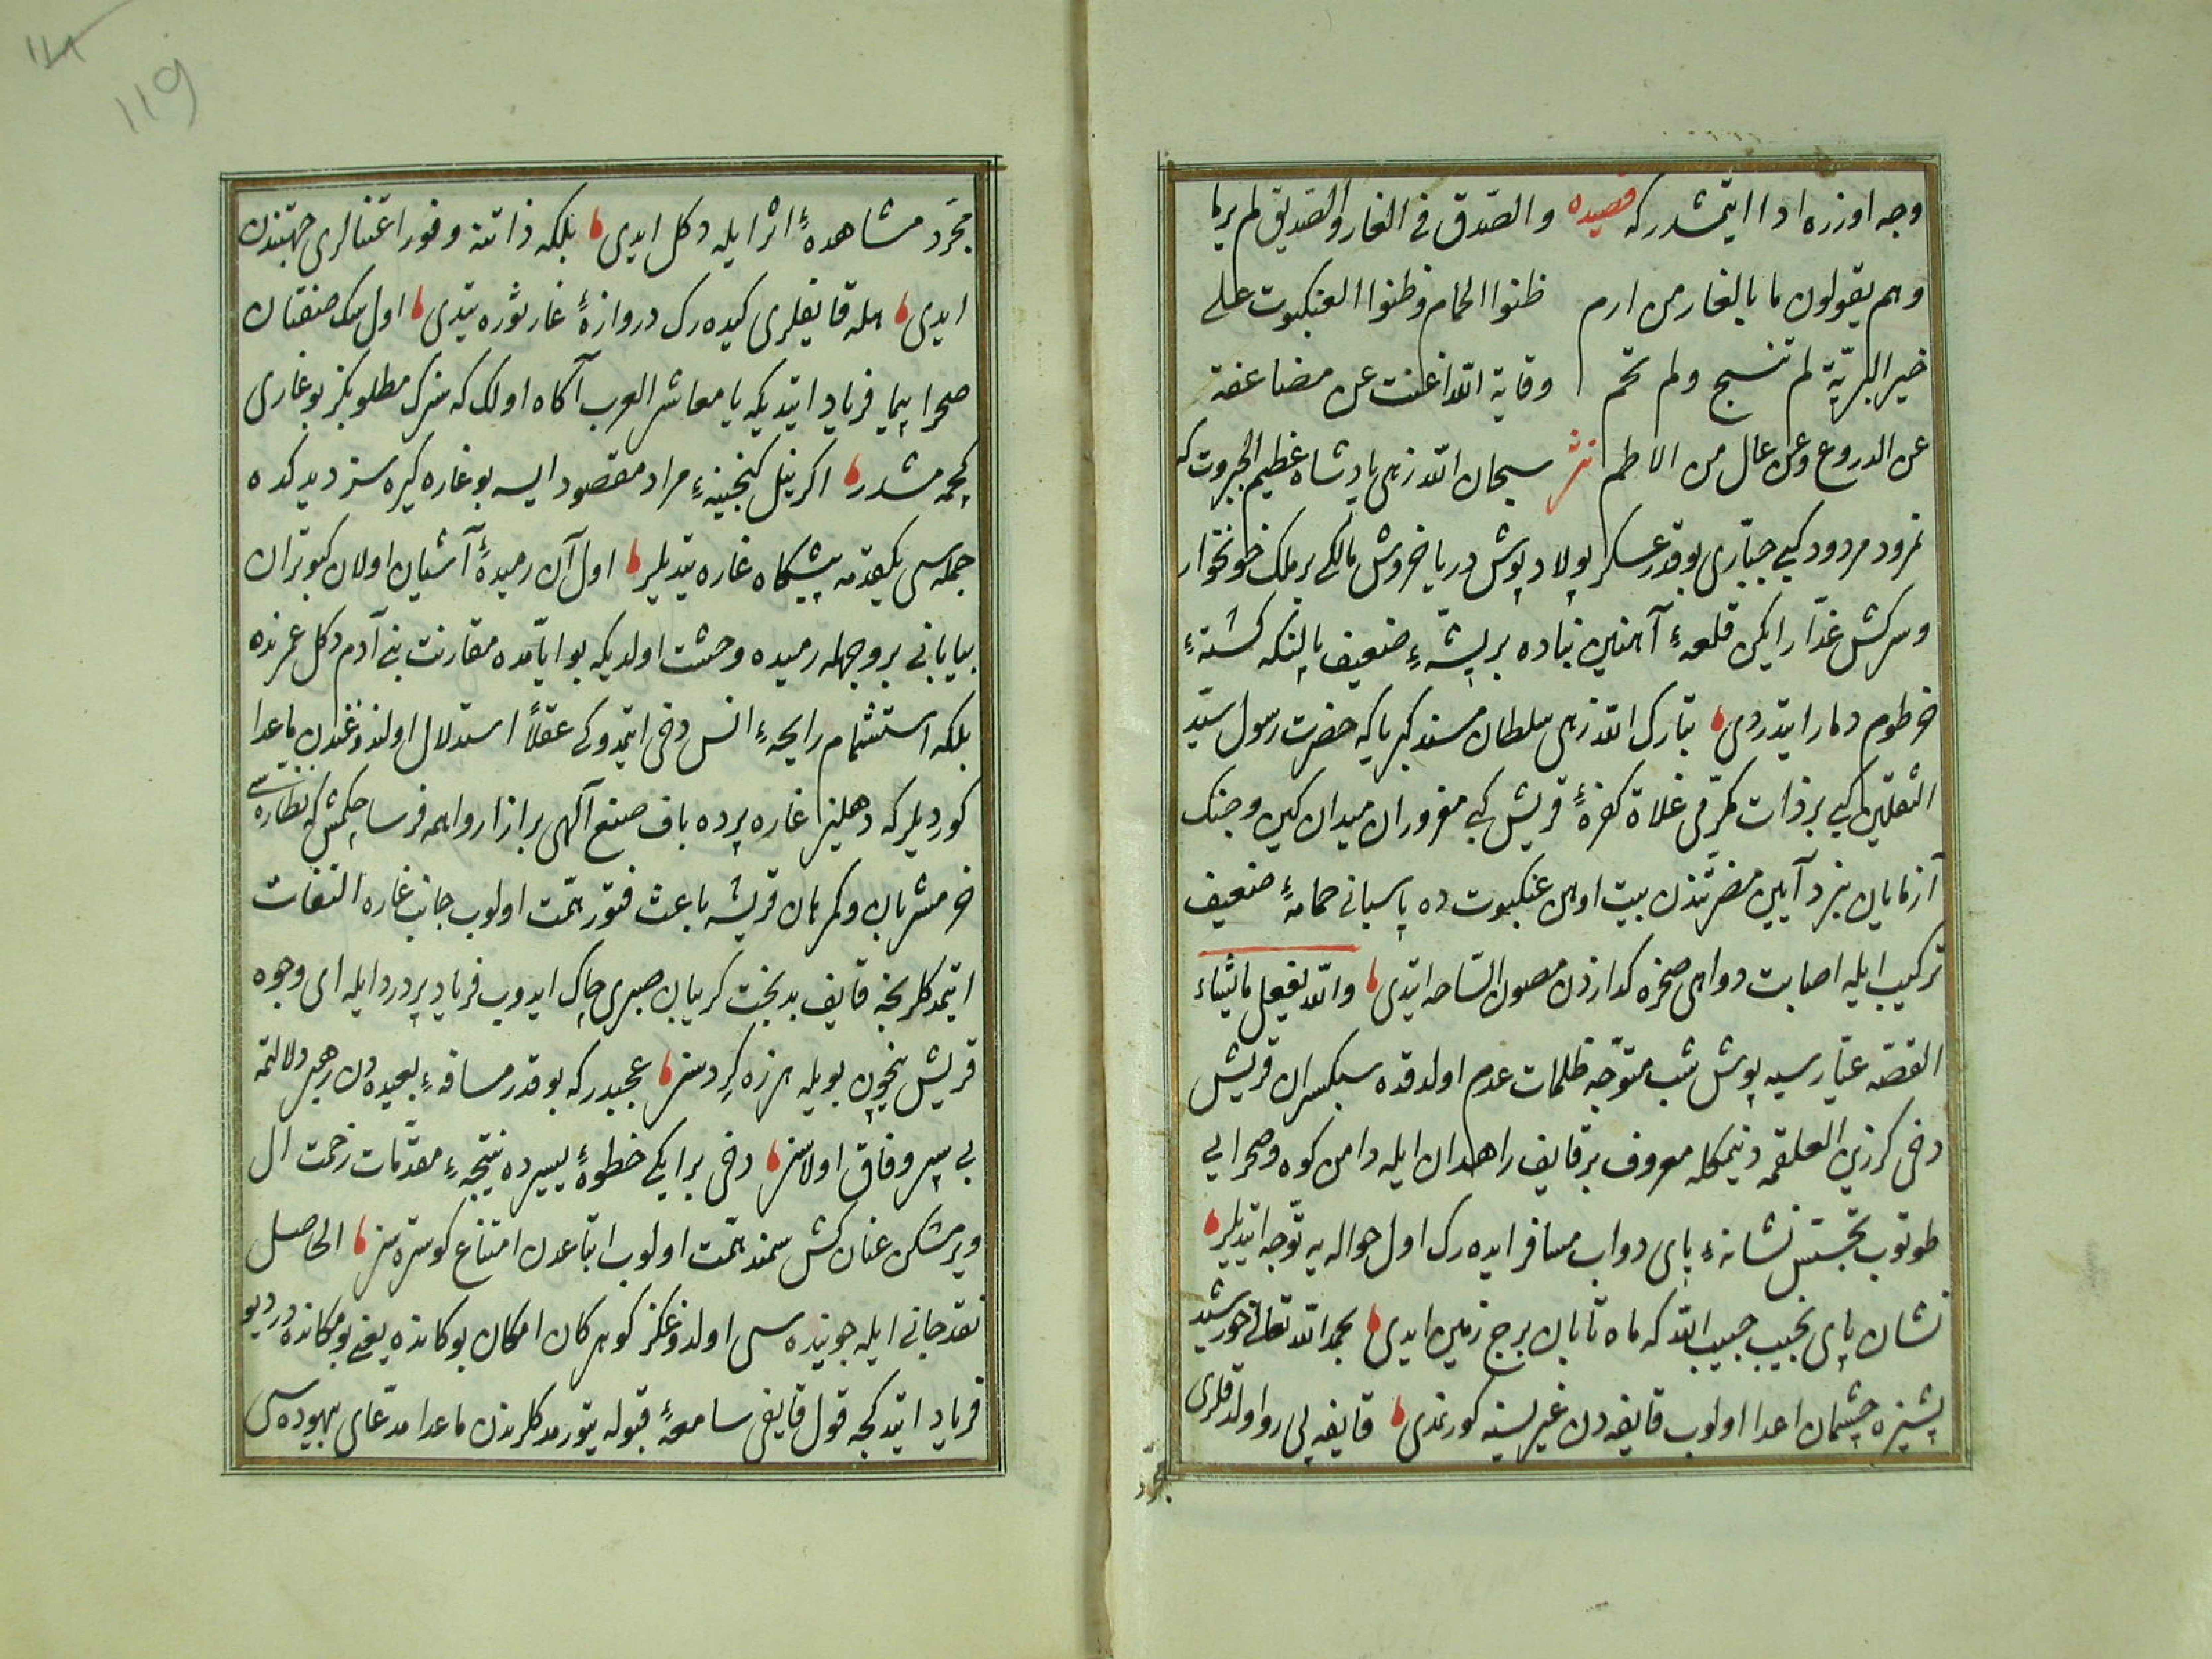 وجه اوزره ادا ایتمشدر که قصیده والصّدق فی الغار والصّدیق لم یرما
وهم یقولون ما بالغار من ارم ظنوا الحمام وظنوا العنکبوت علی
خیر البریّة لم تنسج ولم تحم وقایة اللّه اغنت عن مضاعفة
عن الدروع وعن عال من الاطم نثر سبحان اللّه زهی پادشاه عظیم الجبروت که
نمرود مردود کبی جبّاری بوقدر عسکر پولاد پوش دریا خروش مالکی بر ملک خونخوار
وسرکش غدّار ایکن قلعهٔ آهنین بناده بر پشّهٔ ضعیف پالنکه کشتهٔ
خرطوم دمار ایتدردی تبارک اللّه زهی سلطان مسند کبریا که حضرت رسول سیّد
الثقلین کبی بر ذات مکرّمی غلاة کفرهٔ قریش کبی مغروران میدان کین وجنک
آزمایان نبرد آیین مضرّتندن بیت اوهن عنکبوت ده پاسبانی حمامهٔ ضعیف
ترکیب ایله اصابت دواهی صخره کدازدن مصون السّاحه ایتدی واللّه یفعل ما یشاء
القصّه عیّار سیه پوش شب متوجّه ظلمات عدم اولدقده سبکسران قریش
دخی کرز بن العلقمه دینمکله معروف بر قایف راهدان ایله دامن کوه وصحرایی
طوتوب تجسّس نشانهٔ پای دواب مسافر ایده رک اول حواله یه توجّه ایتدیلر
نشان پای نجیب حبیب اللّه که ماه تابان برج زمین ایدی بحمد اللّه تعالی خورشید
پشیزه چشمان اعدا اولوب قایفه دن غیریسنه کورنمدی قایفه پی رو اولدقلری
مجرّد
مجرّد مشاهدهٔ اثر ایله دکل ایدی بلکه ذاتنه وفور اعتنالری جهتندن
ایدی هله قایفلری کیده رک دروازهٔ غار ثوره یتدی اول سک صفتان
صحرا پیما فریاد ایتدیکه یا معاشر العرب آکاه اولک که سزک مطلوبکز بو غاری
کچمه مشدر اکر نیل کنجینهٔ مراد مقصود ایسه بو غاره کیره سز دیدکده
جمله سی یکقدمه پیشکاه غاره یتدیلر اول آن رمیدهٔ آشیان اولان کبوتران
بیابانی بر وجهله رمیده وحشت اولدیکه بو ایّامده مقارنت بنی آدم دکل عمرنده
بلکه استشمام رایحهٔ انس دخی ایتمدوکی عقلاً استدلال اولندوغندن ماعدا
کوردیلر که دهلیز غاره پرده باف صنع آلهی بر ازار واهمه فرسا چکمش که نظاره سی
خر مشربان وکمرهان قریشه باعث فتور همّت اولوب جانب غاره التفات
ایتمدکلرنجه قایف بدبخت کریبان صبری چاک ایدوب فریاد پر درد ایله ای وجوه
قریش نیچون بویله هرزه کرد سز عجبدر که بوقدر مسافهٔ بعیده دن رهبر دلالتمه
بی سپر وفاق اولاسز دخی بر ایکی خطوهٔ یسیرده نتیجهٔ مقدّمات زحمت ال
ویرمشکن عنان کش سمند همّت اولوب اتباعدن امتناع کوستره سز الحاصل
نقد جانی ایله جوینده سی اولدوغکز کوهر کان امکان بو کانده یعنی بو مکانده در دیو
فریاد ایتدکجه قول قایفی سامعهٔ قبوله یتورمدکلرندن ماعدا مدّعای بیهوده سی
119